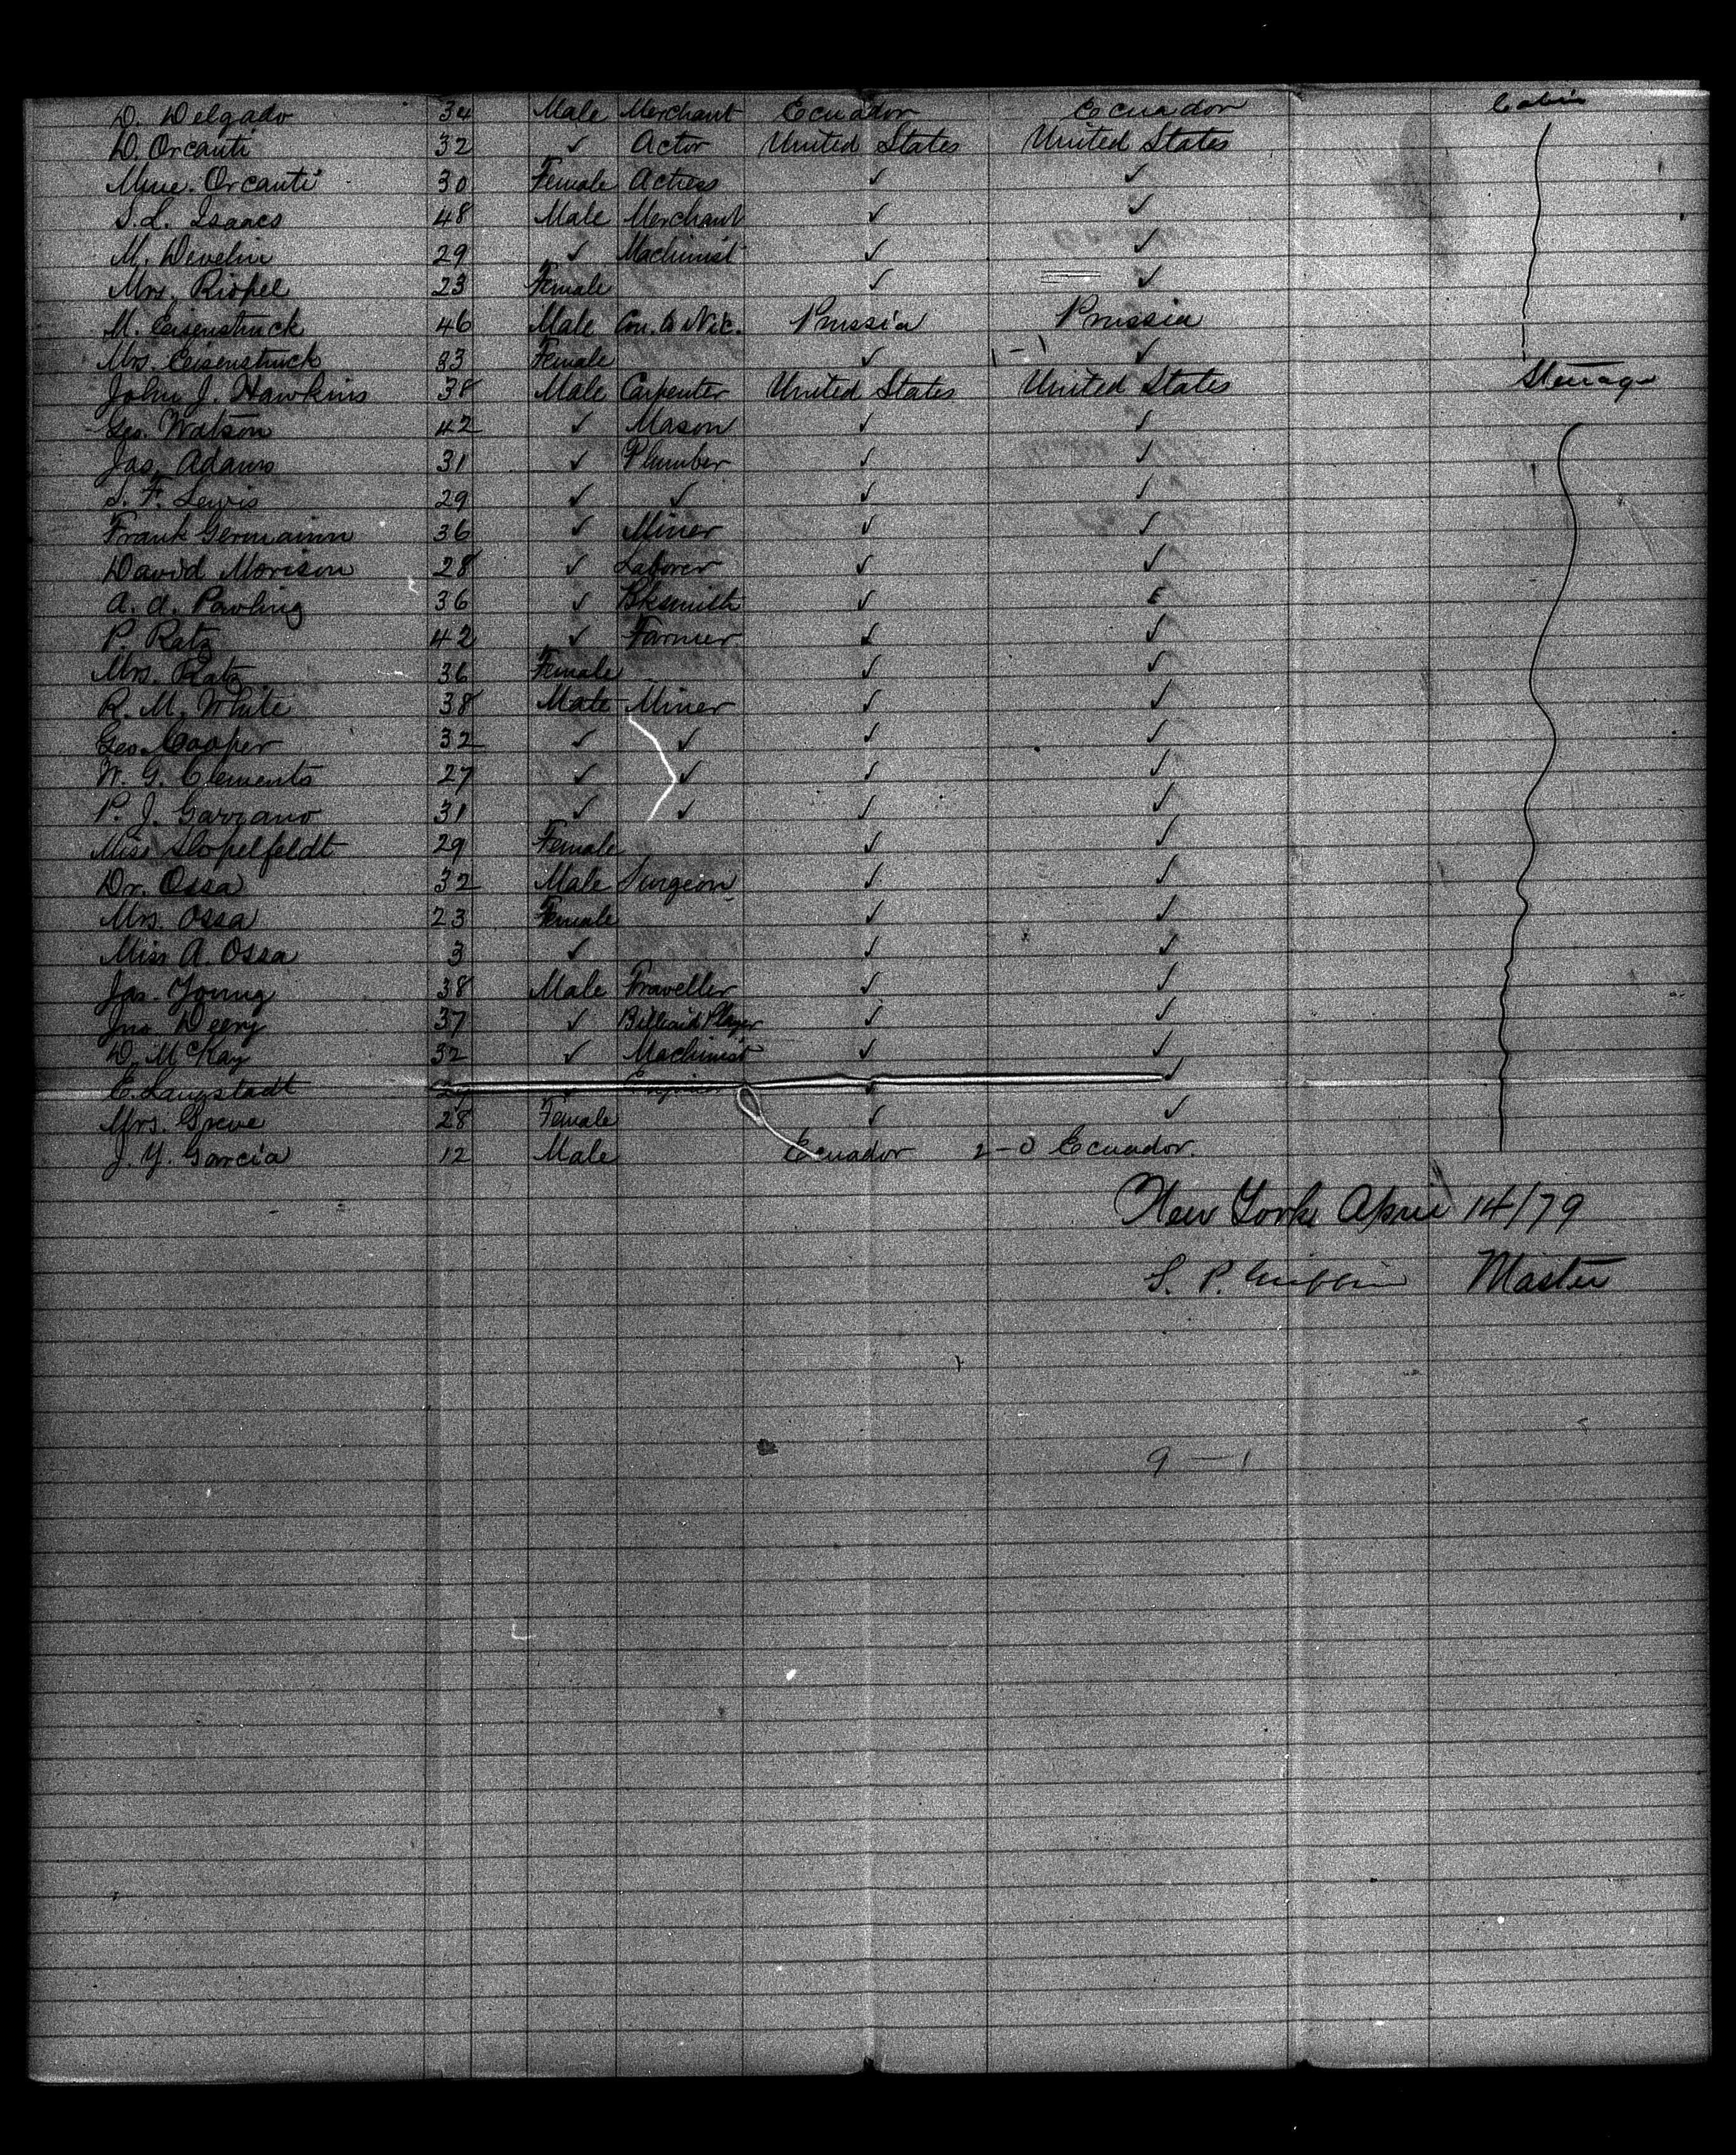 D. Delgado 34 Male Merchant Ecuador Ecuador Cabin
D. Orcanti 32 ✓ Actor United States United States
Mme. Orcanti 30 Female Actress ✓ ✓
S. L. Isaacs 48 Male Merchant ✓ ✓
M. Develin 29 ✓ Machinist ✓ ✓
Mrs. Riopel 23 Female ✓ ✓
M. Eisenstuck 46 Male Con. to Nic. Prussia Prussia
Mrs. Eisenstuck 33 Female ✓ 1-1 ✓
John J. Hawkins 38 Male Carpenter United States United States Steerage
Geo. Watson 42 ✓ Mason ✓ ✓
Jas. Adams 31 ✓ Plumber ✓ ✓
S. F. Lewis 29 ✓ ✓ ✓ ✓
Frank Germainn 36 ✓ Miner ✓ ✓
David Morison 28 ✓ Laborer ✓ ✓
A. A. Pawling 36 ✓ Bksmith ✓ ✓
P. Ratz 42 ✓ Farmer ✓ ✓
Mrs. Ratz 36 Female ✓ ✓
R. M. White 38 Male Miner ✓ ✓
Geo. Cooper 32 ✓ ✓ ✓ ✓
W. G. Clements 27 ✓ ✓ ✓ ✓
P. J. Garzano 31 ✓ ✓ ✓ ✓
Miss Slopelfeldt 29 Female ✓ ✓
Dr. Ossa 32 Male Surgeon ✓ ✓
Mrs. Ossa 23 Female ✓ ✓
Miss A. Ossa 3 ✓ ✓ ✓
Jas. Young 38 Male Traveller ✓ ✓
Jno. Deery 37 ✓ Billiard Player ✓ ✓
D. McKay 32 ✓ Machinist ✓ ✓
E. Langstadt ✓ ✓ ✓
Mrs. Greve 28 Female ✓ ✓
J. Y. Garcia 12 Male Ecuador 2-0 Ecuador.
New York April 14/79
S. P. Master
9 — 1